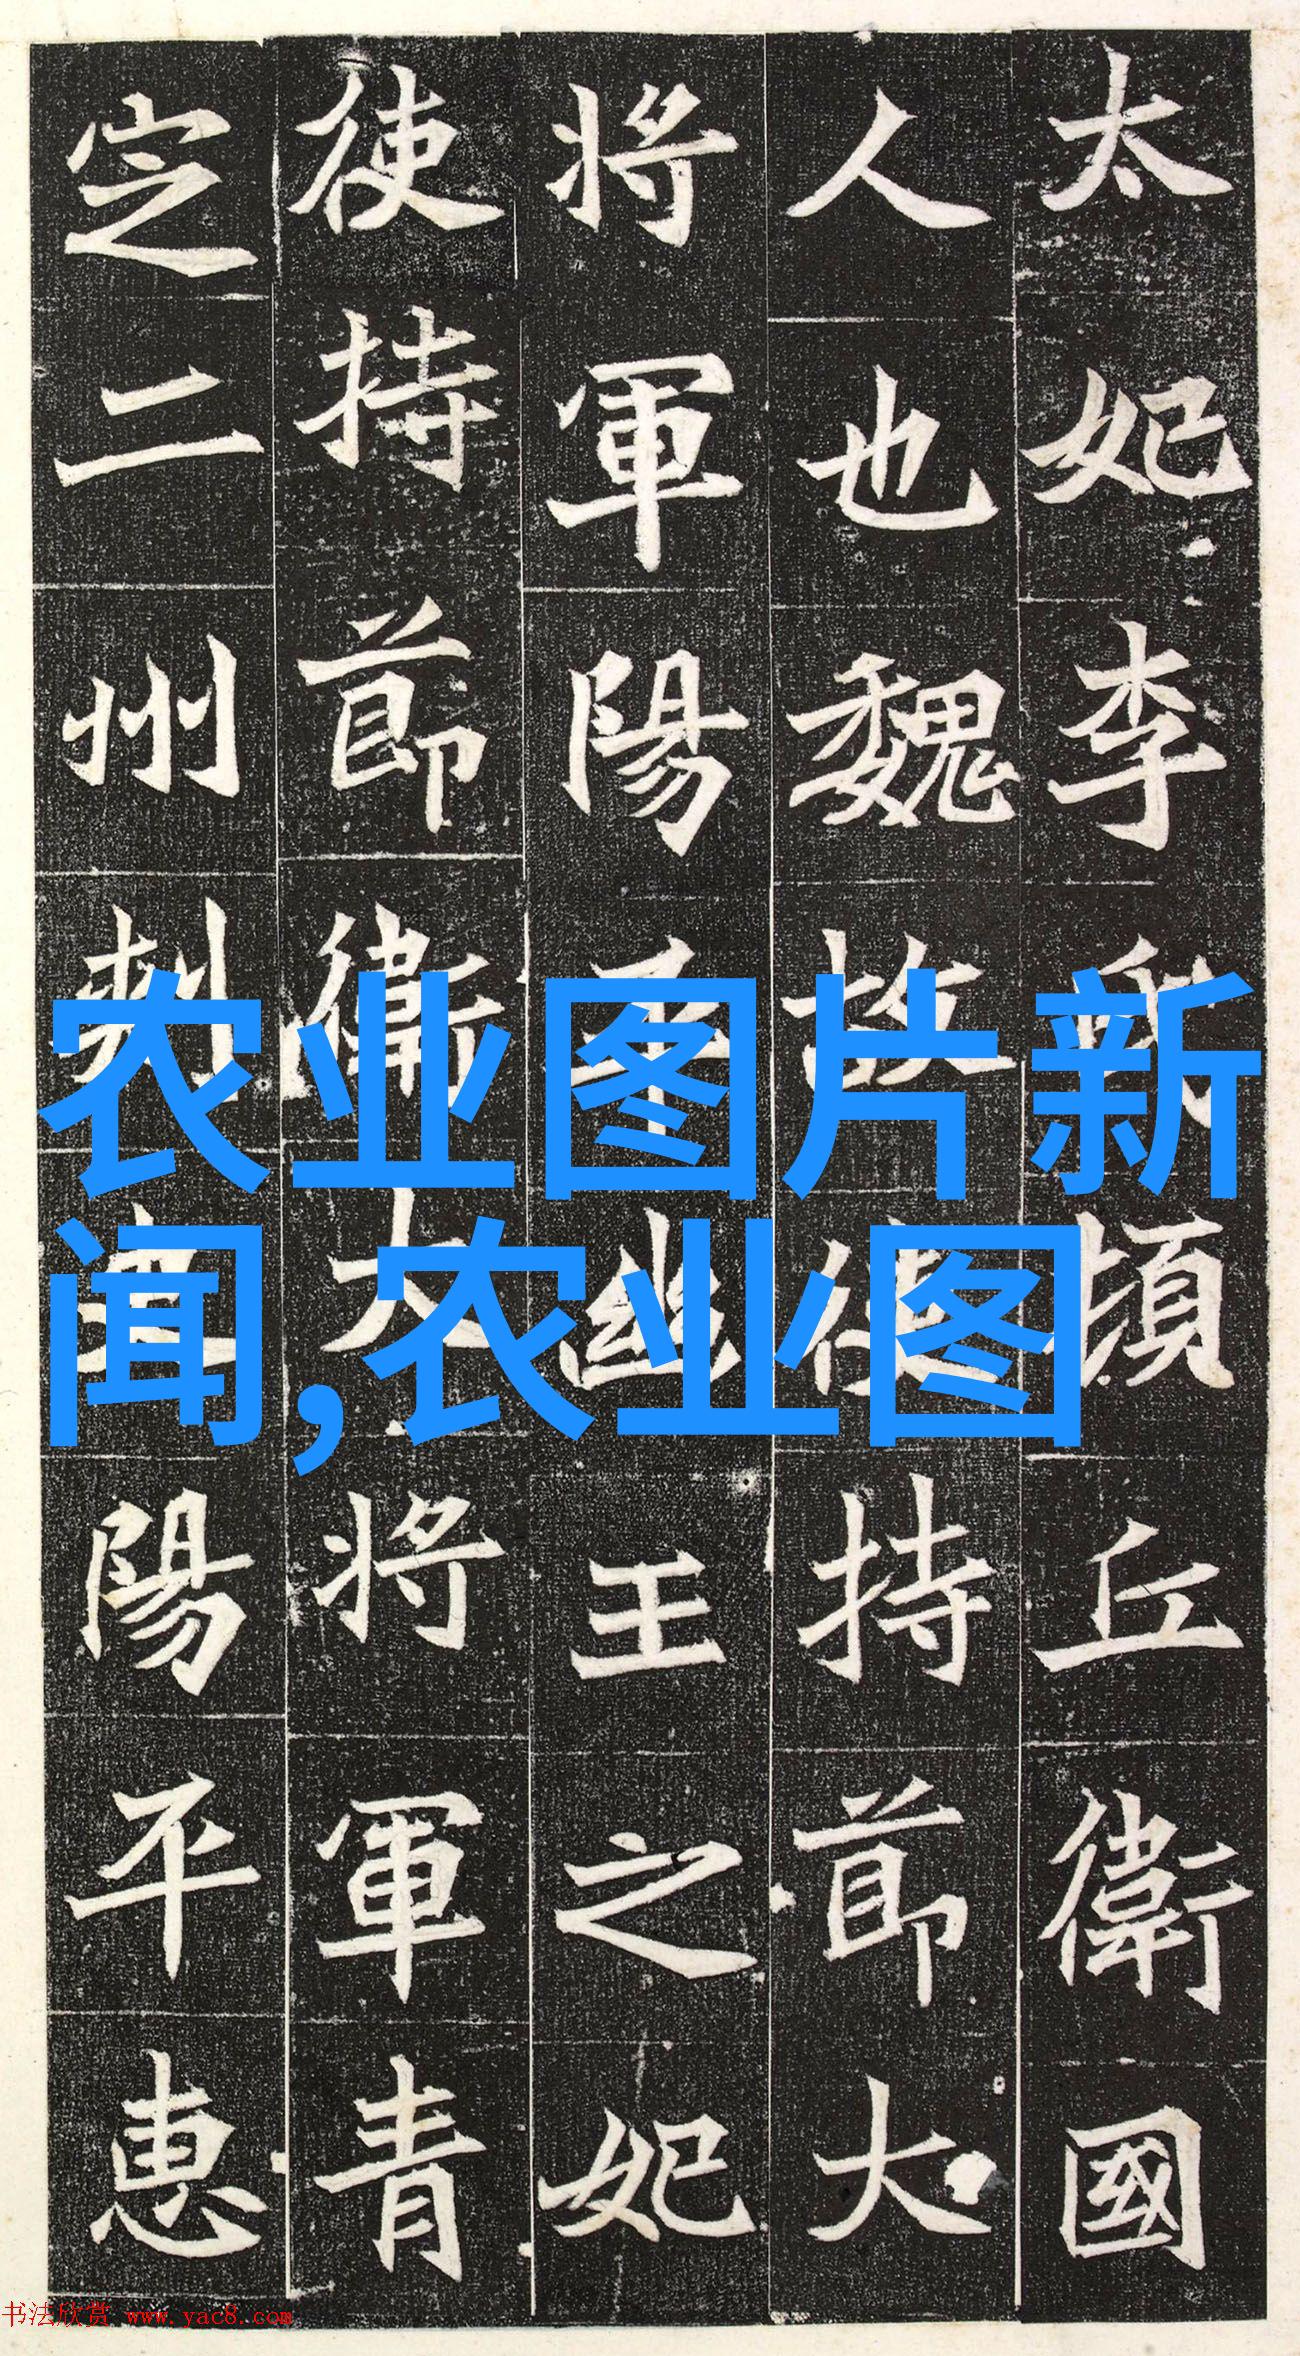 太妃李氏頓丘衛國
人也魏故使持節大
將軍陽平幽王之妃
使持節衛大將軍青
定二州刺史陽平惠
农业图片新
闻,农业图
书法欣赏 www.yac8.com